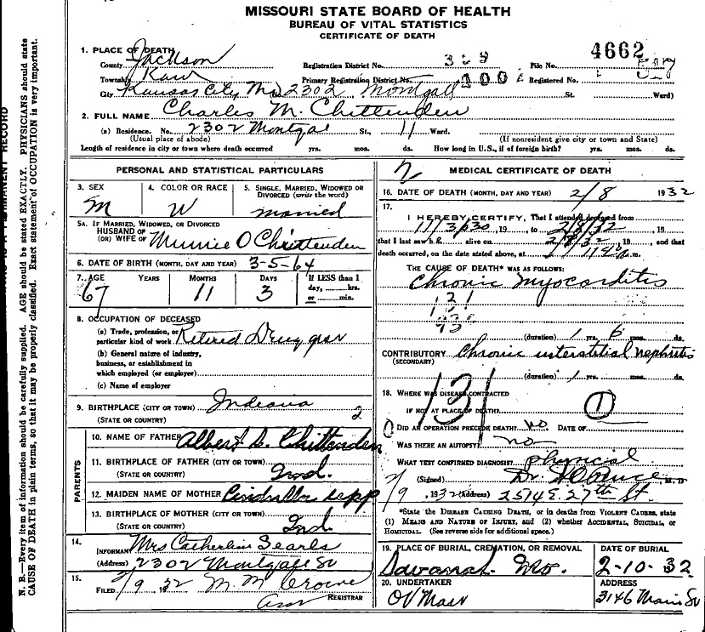 MISSOURI STATE BOARD OF HEALTH
BUREAU OF VITAL STATISTICS
CERTIFICATE OF DEATH
1. PLACE OF DEATH
County Jackson Registration District No. File No. 4662
Township Kaw Primary Registration District No. Registered No.
City Kansas City Mo 2302 Montgall St. Ward)
2. FULL NAME Charles M. Chittenden
(a) Residence. No. 2302 Montgal St., 11 Ward.
(Usual place of abode) (If nonresident give city or town and State)
Length of residence in city or town where death occurred yrs. mos. ds. How long in U.S., if of foreign birth? yrs. mos. ds.
PERSONAL AND STATISTICAL PARTICULARS
3. SEX 4. COLOR OR RACE 5. SINGLE, MARRIED, WIDOWED OR DIVORCED (write the word)
M W married
5a. IF MARRIED, WIDOWED, OR DIVORCED
HUSBAND OF
(OR) WIFE OF O Chittenden
6. DATE OF BIRTH (MONTH, DAY AND YEAR) 3-5-64
7. AGE YEARS MONTHS DAYS If LESS than 1 day, hrs. or min.
67 11 3
8. OCCUPATION OF DECEASED
(a) Trade, profession, or
particular kind of work Retired
(b) General nature of industry,
business, or establishment in
which employed (or employer)
(c) Name of employer
9. BIRTHPLACE (CITY OR TOWN) Indiana 2
(STATE OR COUNTRY)
PARENTS
10. NAME OF FATHER Albert Chittenden
11. BIRTHPLACE OF FATHER (CITY OR TOWN)
(STATE OR COUNTRY) Ind.
12. MAIDEN NAME OF MOTHER
13. BIRTHPLACE OF MOTHER (CITY OR TOWN)
(STATE OR COUNTRY) Ind
14.
INFORMANT Mrs Catherine Searls
(Address) 2302 Montgall
15.
FILED 2/9 32 M. M. REGISTRAR
MEDICAL CERTIFICATE OF DEATH
16. DATE OF DEATH (MONTH, DAY AND YEAR) 2/8 1932
17.
I HEREBY CERTIFY, That I attended deceased from
11/3/30, 19 , to 2/8/32, 19
that I last saw h alive on 2/8/32, 19 , and that
death occurred, on the date stated above, at m.
THE CAUSE OF DEATH* WAS AS FOLLOWS:
Chronic myocarditis
(duration) 1 yrs. 6 mos. ds.
CONTRIBUTORY Chronic interstitial nephritis
(SECONDARY)
(duration) 1 yrs. mos. ds.
18. WHERE WAS DISEASE CONTRACTED
IF NOT AT PLACE OF DEATH? 131 1
DID AN OPERATION PRECEDE DEATH? no DATE OF
WAS THERE AN AUTOPSY? no
WHAT TEST CONFIRMED DIAGNOSIS? physical
(Signed) Dr. M. D.
2/9, 1932 (Address) 2514 E. 27th St.
*State the DISEASE CAUSING DEATH, or in deaths from VIOLENT CAUSES, state
(1) MEANS AND NATURE OF INJURY, and (2) whether ACCIDENTAL, SUICIDAL, or
HOMICIDAL. (See reverse side for additional space.)
19. PLACE OF BURIAL, CREMATION, OR REMOVAL DATE OF BURIAL
Savanah Mo. 2-10-32
20. UNDERTAKER ADDRESS
3146 Main St
N. B.—Every item of information should be carefully supplied. AGE should be stated EXACTLY. PHYSICIANS should state
CAUSE OF DEATH in plain terms, so that it may be properly classified. Exact statement of OCCUPATION is very important.